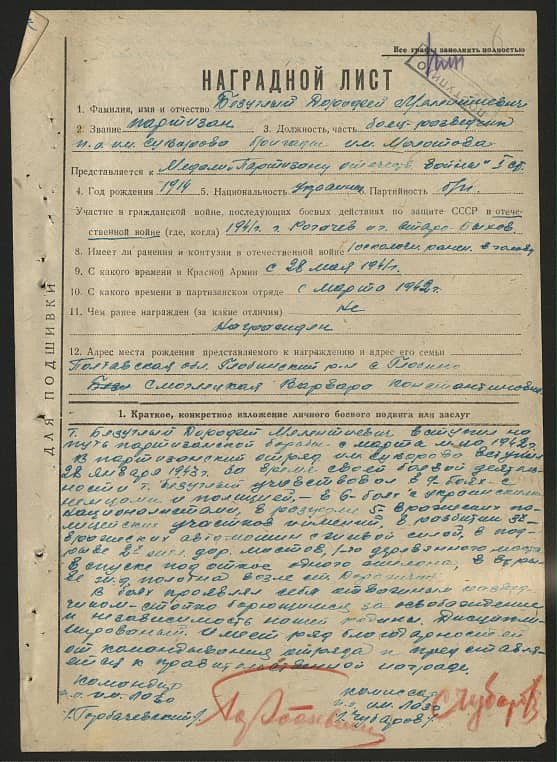 Все графы заполнять полностью
НАГРАДНОЙ ЛИСТ
1. Фамилия, имя и отчество Безуглый Дорофей Мелентиевич
2. Звание партизан 3. Должность, часть боец-разведчик
п.о им. Суворова бригады им. Молотова
Представляется к Медали "Партизану отечеств. войны" I ст.
4. Год рождения 1914 5. Национальность украинец 6. Партийность б/п
Участие в гражданской войне, последующих боевых действиях по защите СССР и отече-
ственной войне (где, когда) 1941г. г. Рогачев ст. Старо-Быхов.
8. Имеет ли ранения и контузии в отечественной войне 1 осколочн. ранен. в голову
9. С какого времени в Красной Армии с 28 мая 1941г.
10. С какого времени в партизанском отряде с марта 1942г.
11. Чем ранее награжден (за какие отличия) Не
награжден
12. Адрес места рождения представляемого к награждению и адрес его семьи
Полтавская обл. Глобинский р-н с. Глобино
Смоглецкая Варвара Константиновна
ДЛЯ ПОДШИВКИ
1. Краткое, конкретное изложение личного боевого подвига или заслуг
т. Безуглый Дорофей Мелентиевич вступил на
путь партизанской борьбы с марта м-ца 1942г.
В партизанский отряд им Суворова вступил
28 января 1943г. За время своей боевой деятель-
ности т. Безуглый участвовал в 9 боях с
немцами и полицией, в 6 боях с украинскими
националистами, в разгроме 5 вражеских по-
лицейских участков и имений, в разбитии 3х
вражеских автомашин с живой силой, в под-
рыве 2х жел. дор. мостов, 1-го деревянного моста
в спуске под откос одного эшелона, в взры-
ве ж.д. полотна возле ст.
В боях проявлял себя
стойко борющимся за освобождение
и независимость нашей родины. Дисципли-
нированый. Имеет ряд благодарностей
от командывания отряда и представля-
ется к правительственной награде.
Командир
п.о. им. Лазо
/Горбачевский/
Комиссар
п.о им. Лазо
/Чубаров/
С Чубаров